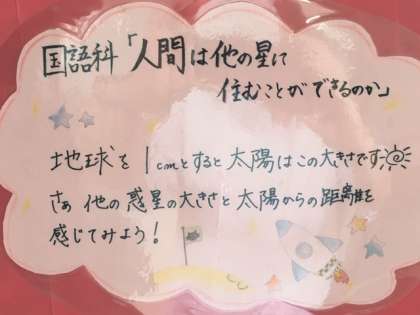 国語科「人間は他の星に
住むことができるのか」
地球を1cmとすると太陽はこの大きさです
さぁ他の惑星の大きさと太陽からの距離を
感じてみよう!